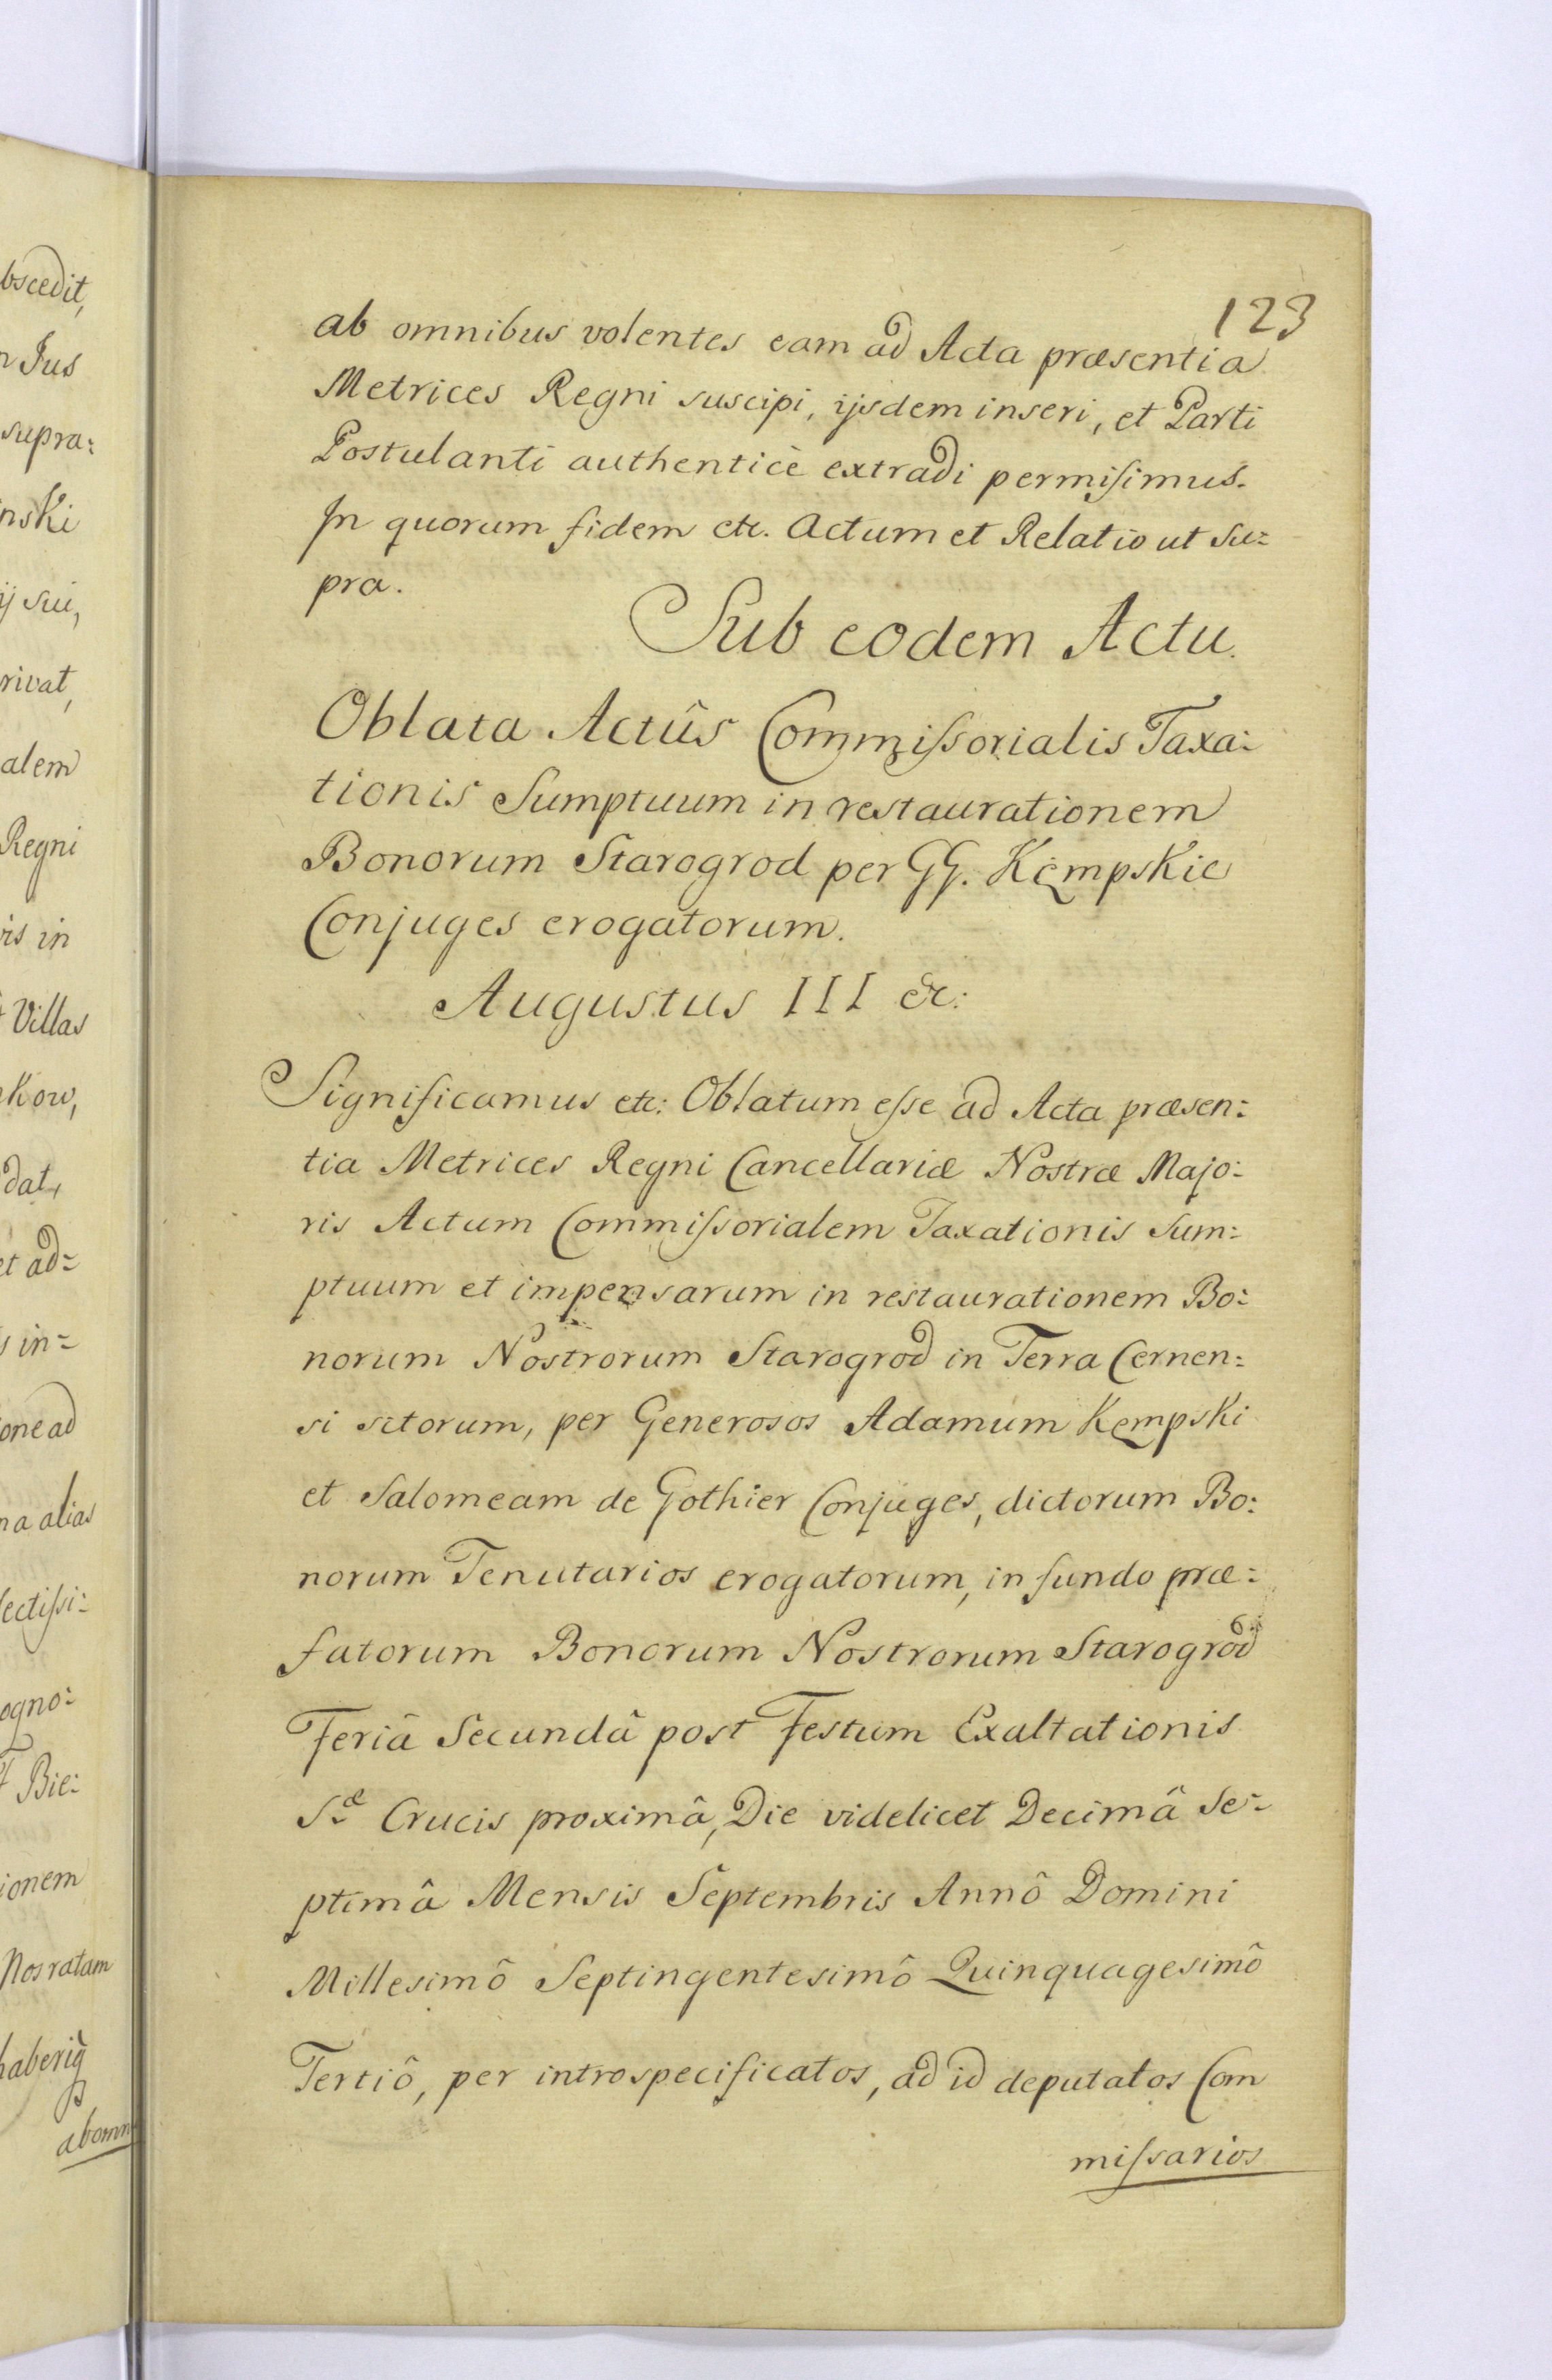 123
ab omnibus volentes eam ad Acta præsentia
Metrices Regni suscipi, ijsdem inseri, et Parti
Postulanti authenticè extradi permiſimus.
In quorum fidem etc. Actum et Relatio ut su=
pra.
Sub eodem Actu.
Oblata Actûs Commiſsorialis Taxa=
tionis Sumptuum in restaurationem
Bonorum Starogrod per GG. Kęmpskie
Conjuges erogatorum.
Augustus III &c:
Significamus etc: Oblatum eſse ad Acta præsen=
tia Metrices Regni Cancellariæ Nostræ Majo=
ris Actum Commiſsorialem Taxationis Sum=
ptuum et impensarum in restaurationem Bo=
norum Nostrorum Starogrod in Terra Cernen=
si sitorum, per Generosos Adamum Kęmpski
et Salomeam de Gothier Conjuges, dictorum Bo=
norum Tenutarios erogatorum, in fundo præ=
fatorum Bonorum Nostrorum Starogrod
Feriâ Secundâ post Festum Exaltationis
Sæ Crucis proximâ, Die videlicet Decimâ Se=
ptimâ Mensis Septembris Annô Domini
Millesimô Septingentesimô Quinquagesimô
Tertiô, per introspecificatos, ad id deputatos Com
miſsarios
bscedit,
n Jus
supra=
inski
ij sui,
rivat,
alem
Regni
vis in
Villas
kow,
dat,
et ad=
s in=
one ad
na alias
lectiſsi=
ogno=
Bie=
ionem
Nos ratam
haberi
ab omn